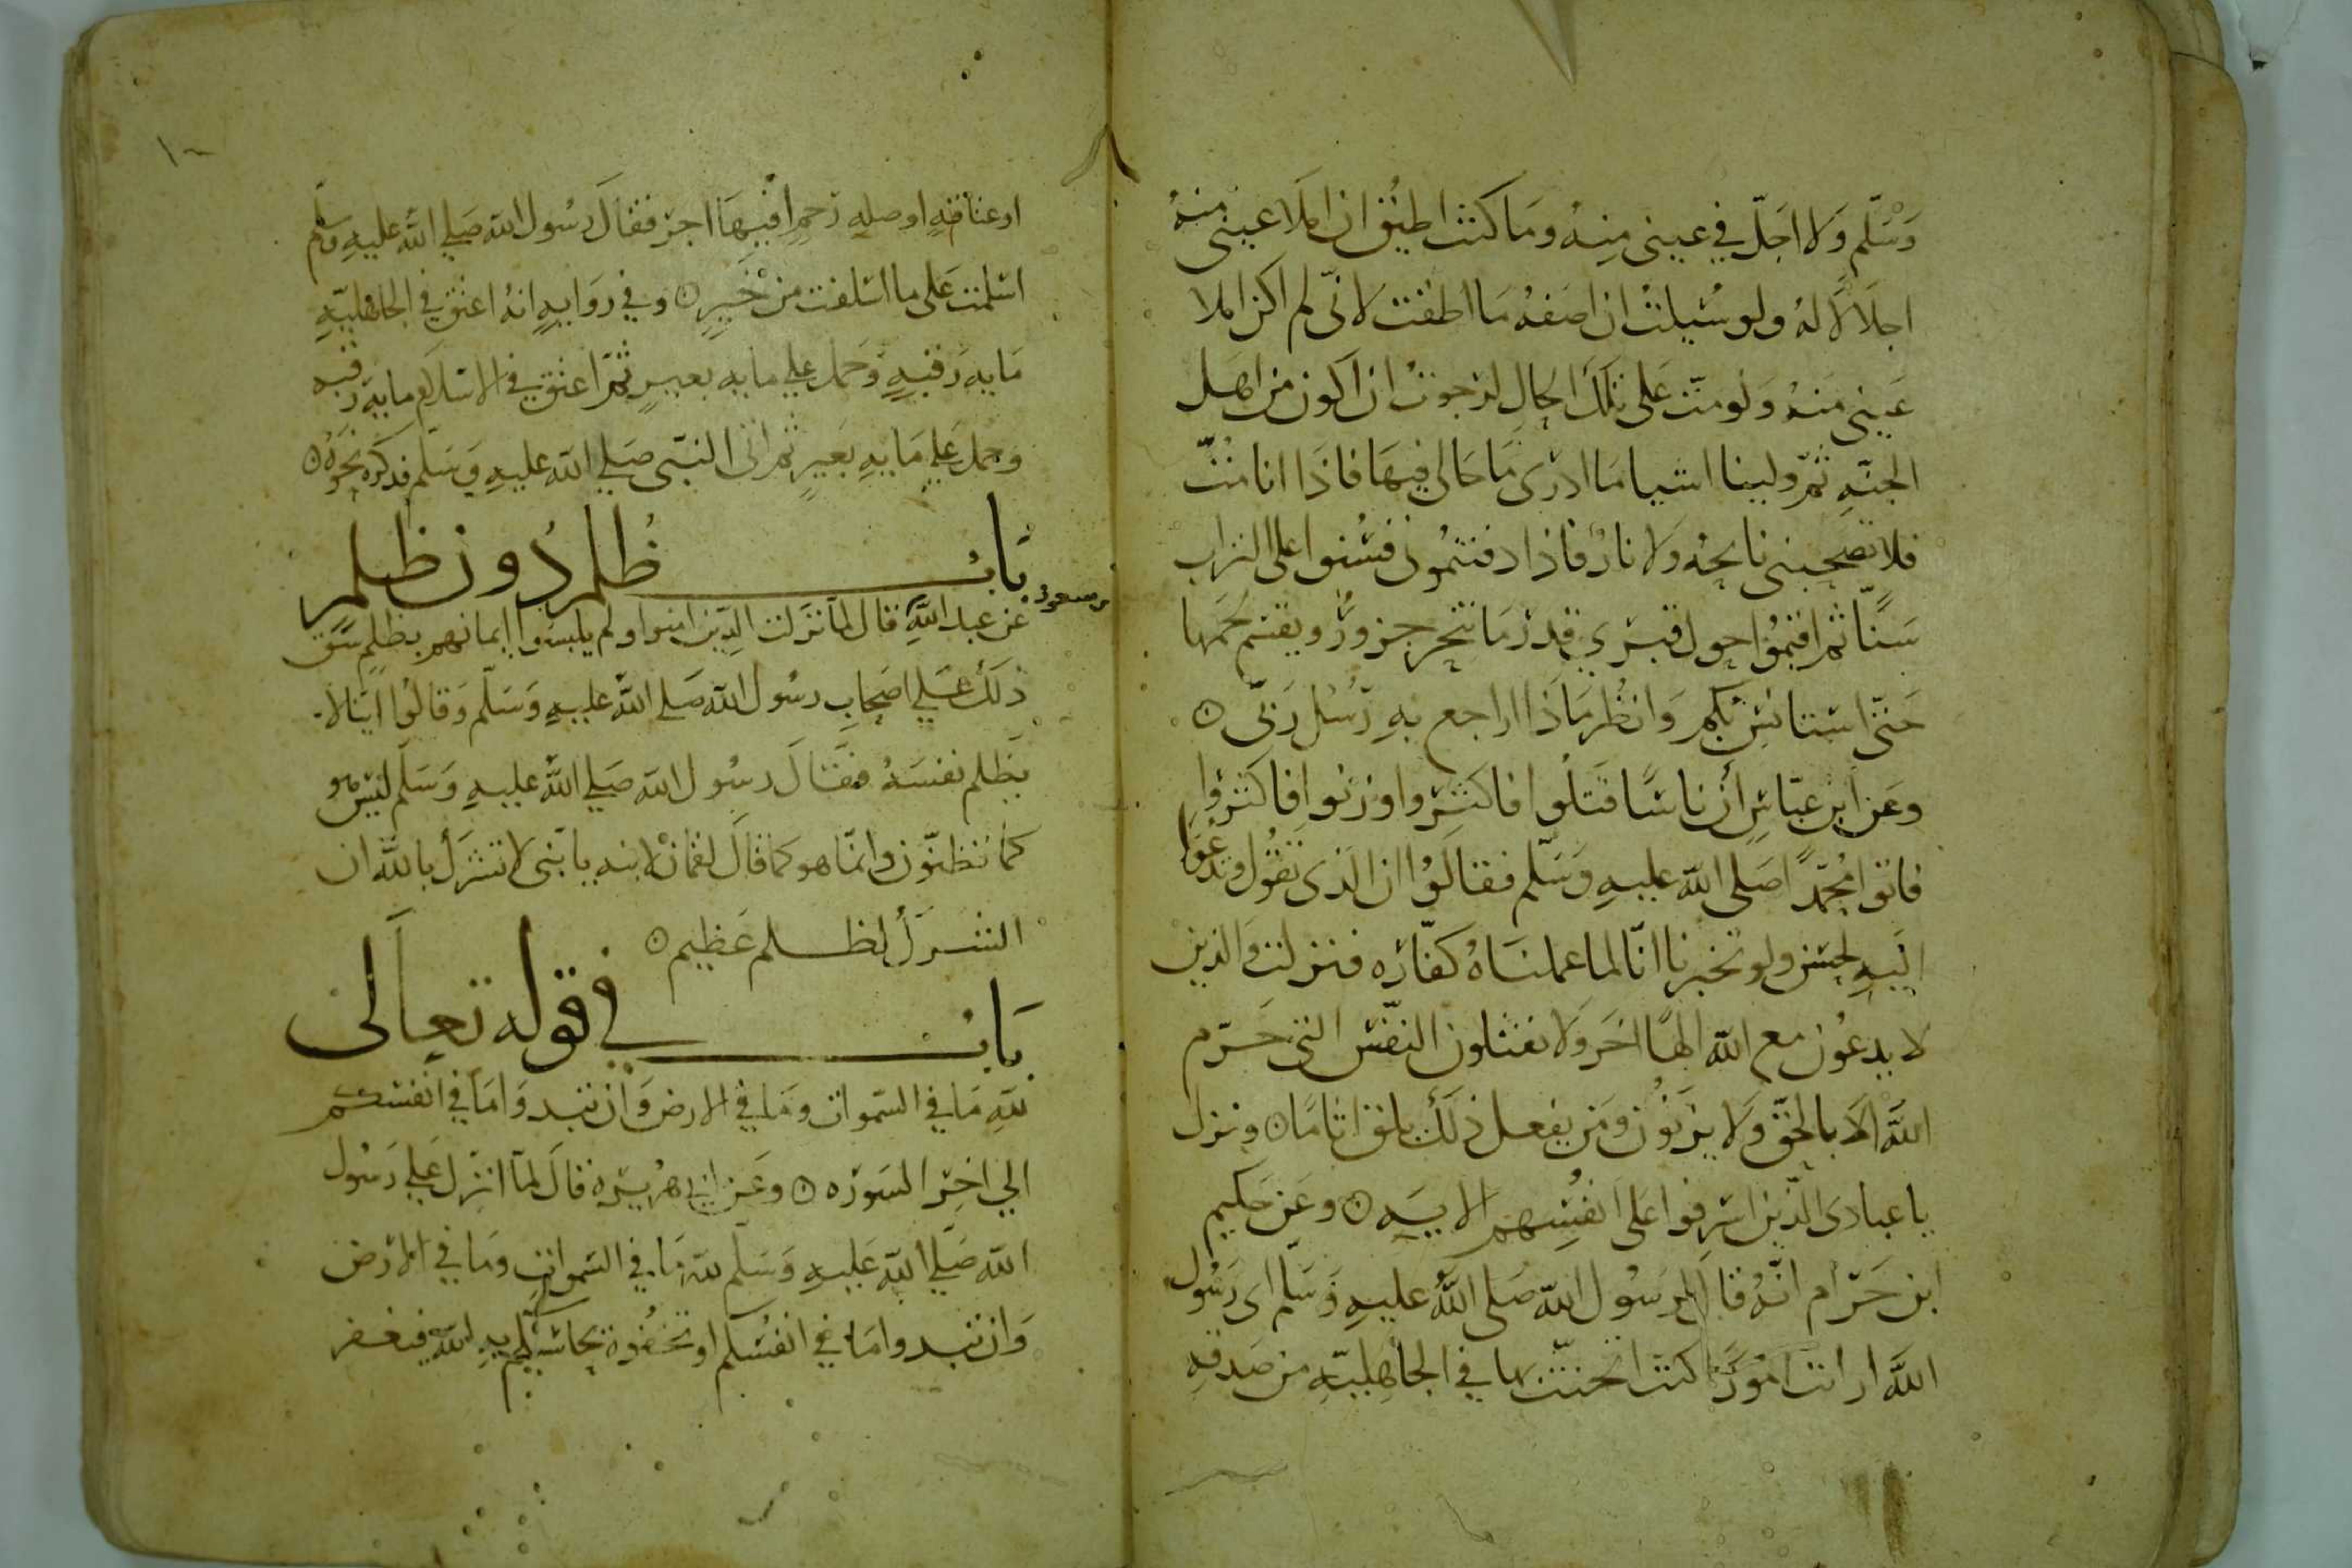 وَسَلّم وَلا اجَلّ في عيني مِنهُ وَمَا كنت اطيق ان املا عيني منهُ
اجلَالاً لهُ ولو سُئِلتُ ان اصَفهُ مَا اطقت لانّي لم اكن املا
عَيني منهُ وَلو متّ عَلى تلك الحالِ لرجوتُ ان اكون من اهل
الجنّهِ ثمّ ولينا اشيا مَا ادرى مَا حَالى فيهَا فاذا انا متّ
فلا تصحبنى نايحهُ وَلا نارٌ فاذا دفنتمُونى فشنوا على التراب
سَنًّا ثم اقيمُوا حول قبرى قدر مَا تنحر جزورٌ ويقسم لحمها
حَتّى استانسَ بكم وَانظر مَاذا اراجع بهِ رُسُل رَبّى ٥
وعَن ابن عبّاسٍ أن ناسًا قتلوا فاكثروا وزنوا فاكثروا
فاتوا محُمّدًا صَلى الله عليهِ وَسَلّم فقالوُا ان الّذى تقُول وتدعُوا
اليهِ لحسَن ولو تخبرنا انّا لما عملناهُ كفّارَه فنزلت والذين
لا يدعُون مع الله الهًا اخَر وَلا يقتلون النفس التى حَرّم
اللهُ الّا بالحَقّ وَلا يزنُون ومَن يفعل ذلك يلق اثامًا ٥ ونزل
يا عبادىَ الّذين اسرفوا على انفُسِهم الايَه ٥ وعَن حَكيم
ابن حَزام انّهُ قالَ لرسُول الله صَلى اللهُ عليهِ وَسَلّم اى رَسُول
اللهَ ارايت امُورًا كنت اتحنّث بها في الجاهِليّهِ من صَدقهِ
او عتاقهٍ او صلهِ رَحمٍ افيهَا اجرٌ فقالَ رسُول الله صَلي اللهُ عليهِ وسلم
اسلمت عَلى ما اسلفت من خَيرٍ ٥ وفي روَايهٍ انهُ اعتق في الجاهليّهِ
مَايهَ رَقبهٍ وَحمل على مايهِ بعيرٍ ثمّ اعتق في الاسلام مايهَ رقبه
وحمل على مَايهِ بَعيرٍ ثم اتى النبّى صَلي الله عليهِ وَسَلّم فذكرَ نحوَهُ ٥
بَابُ ظُلم دُون ظلم
عَن عبد اللهِ قال لمّا نزَلت الّذين امنوا ولم يلبسوا ايمانهم بظلمٍ شَقّ
بن مسعود
ذلك عَلي اصَحابِ رسُول الله صَلي اللهُ عليهِ وَسَلّم وَقالوُا ايّنا لا
يَظلم نفسَهُ فقَالَ رسُول الله صَلي اللهُ عليهِ وَسَلّم ليسَ هو
كما تظنّون وانّما هو كما قالَ لقمانُ لابنه يا بُنى لا تشرك بالله ان
الشرَك لظلم عَظيم ٥
بَابُ في قوله تعالى
للهِ مَا في السّموات ومَا في الارض وَان تبدوَا مَا في انفسكم
الي اخر السَورَه ٥ وعَن ابي هُريرَه قالَ لمّا انزل عَلي رَسُول
الله صَلّي الله عَليهِ وَسَلّم للهِ مَا في السّمواتِ ومَا في الارض
وَان تبدوا مَا في انفُسكم او تخفُوه يحاسبكم بهِ الله فيغفر